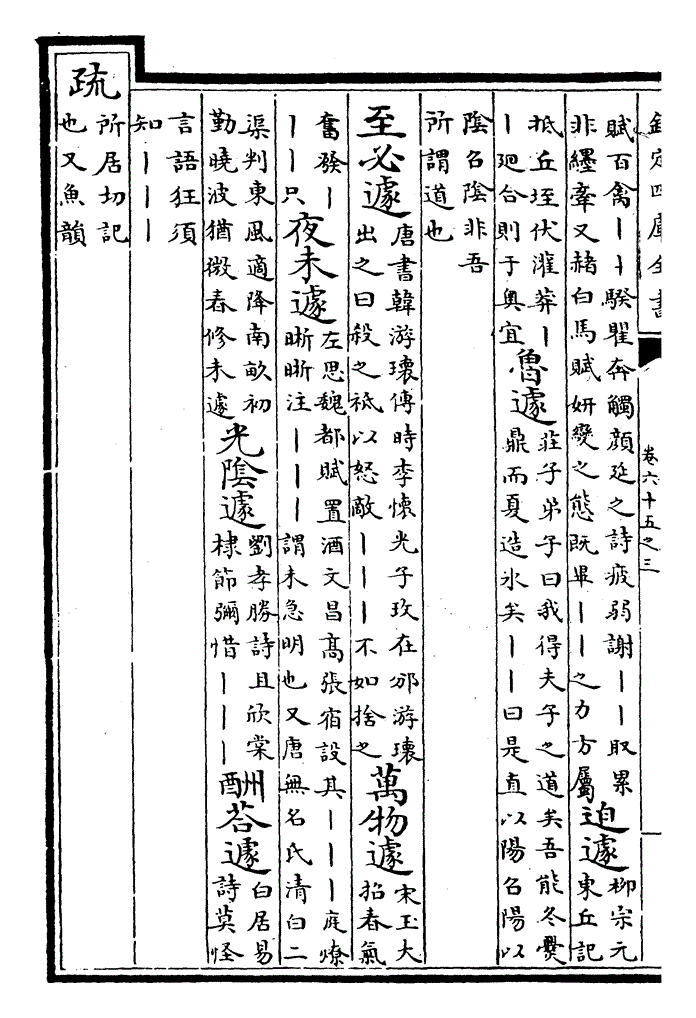 欽定四庫全書
卷六十五之三
賦百禽丨丨騤瞿奔觸顏延之詩疲弱謝丨丨取累
非纆牽又赭白馬賦妍變之態既畢丨丨之力方屬
迫遽
柳宗元
東丘記
抵丘垤伏灌莽丨
丨迴合則于奧宜
魯遽
莊子弟子曰我得夫子之道矣吾能冬爨
鼎而夏造氷矣丨丨曰是直以陽召陽以
陰召陰非吾
所謂道也
至必遽
唐書韓游瓌傳時李懷光子玫在邠游瓌
出之曰殺之祗以怒敵丨丨丨不如捨之
萬物遽
宋玉大
招春氣
奮發丨
丨丨只
夜未遽
左思魏都賦置酒文昌高張宿設其丨丨丨庭燎
晣晣注丨丨丨謂未急明也又唐無名氏清白二
渠判東風適降南畝初
勤曉波猶微春修未遽
光陰遽
劉孝勝詩且欣棠
棣節彌惜丨丨丨
酬荅遽
白居易
詩莫怪
言語狂須
知丨丨丨
疏
所居切記
也又魚韻